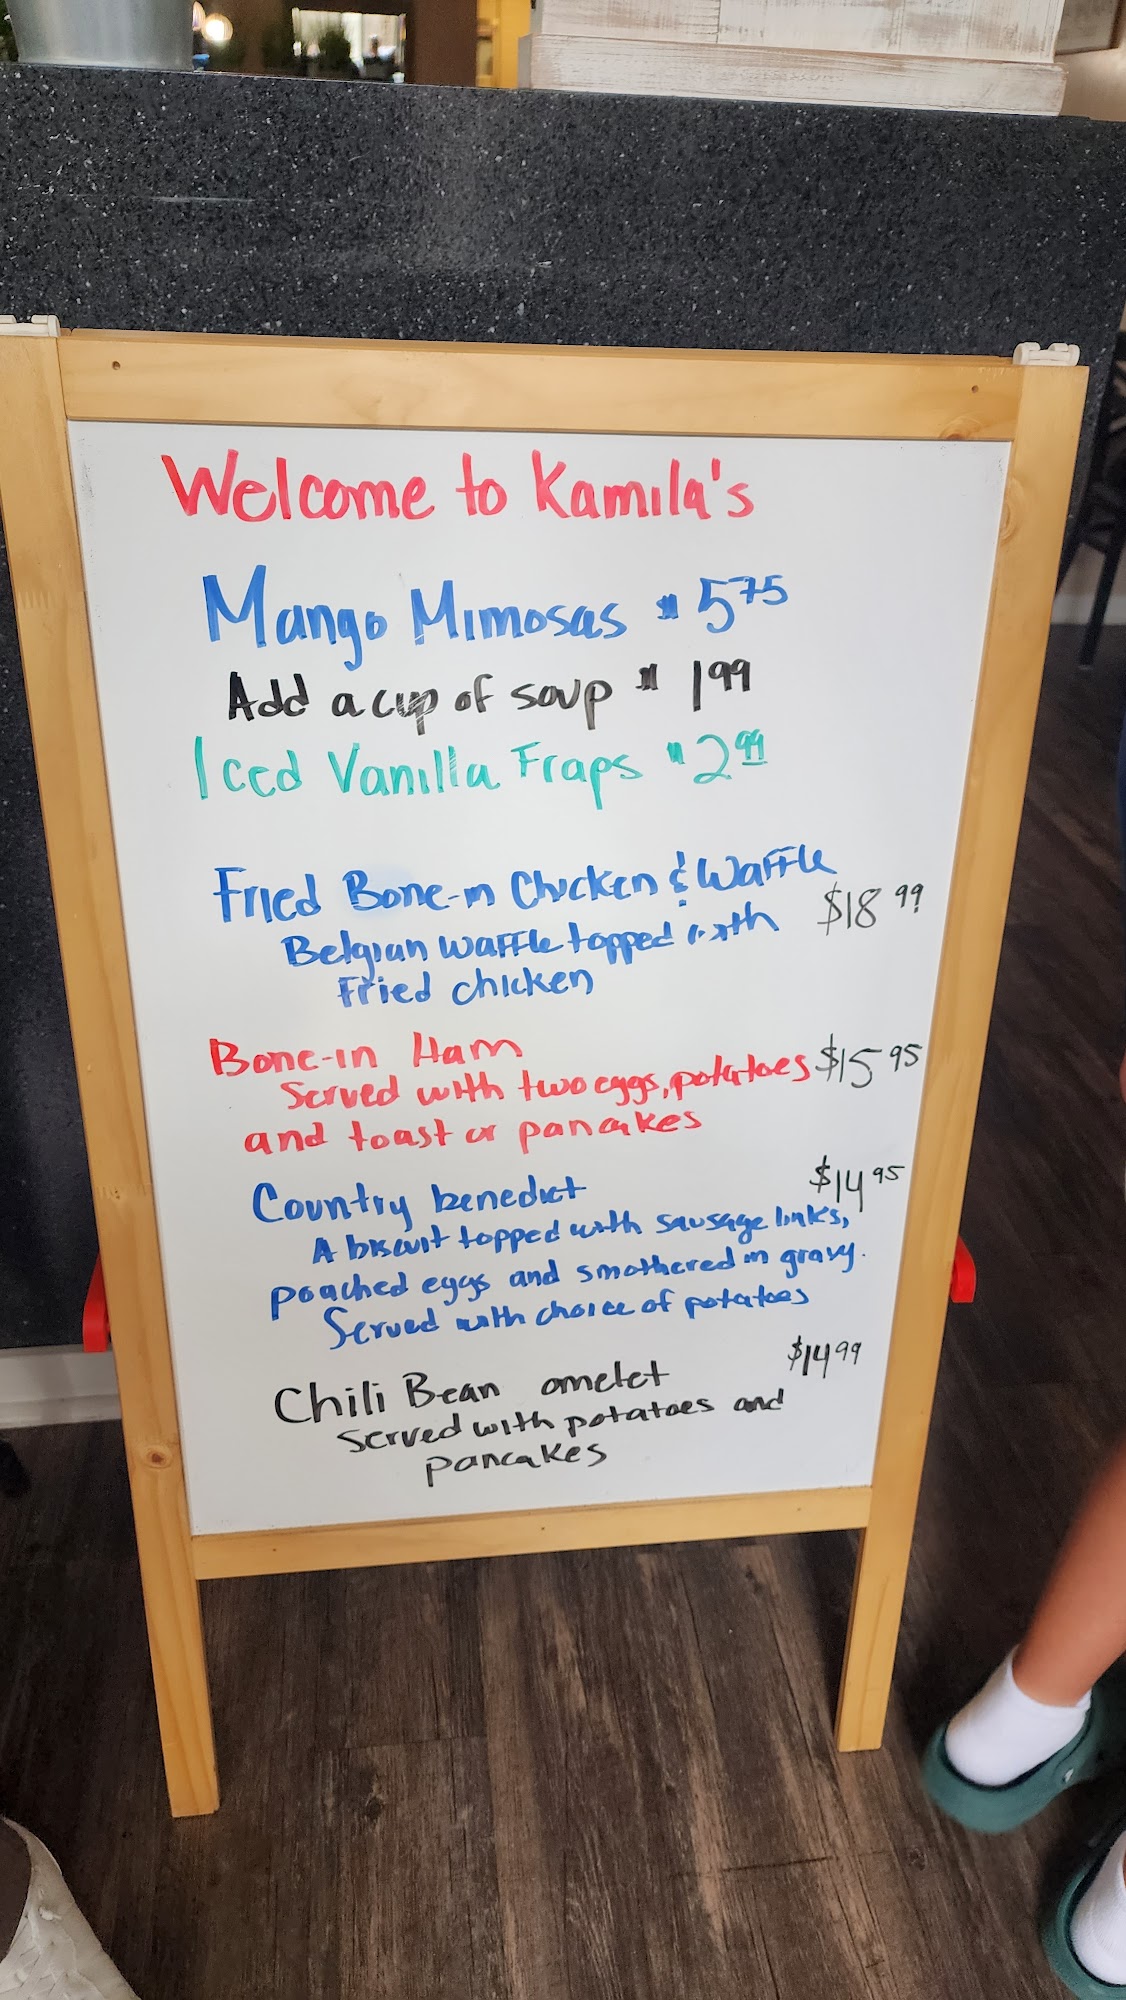 Welcome to Kamila's
Mango Mimosas $5.75
Add a cup of soup $1.99
Iced Vanilla Fraps $2.99
Fried Bone-in Chicken & Waffle
$18.99
Belgian waffle topped with
Fried chicken
Bone-in Ham
Served with two eggs, potatoes $15.95
and toast or pancakes
Country benedict $14.95
A biscuit topped with sausage links,
poached eggs and smothered in gravy.
Served with choice of potatoes
Chili Bean omelet $14.99
Served with potatoes and
pancakes